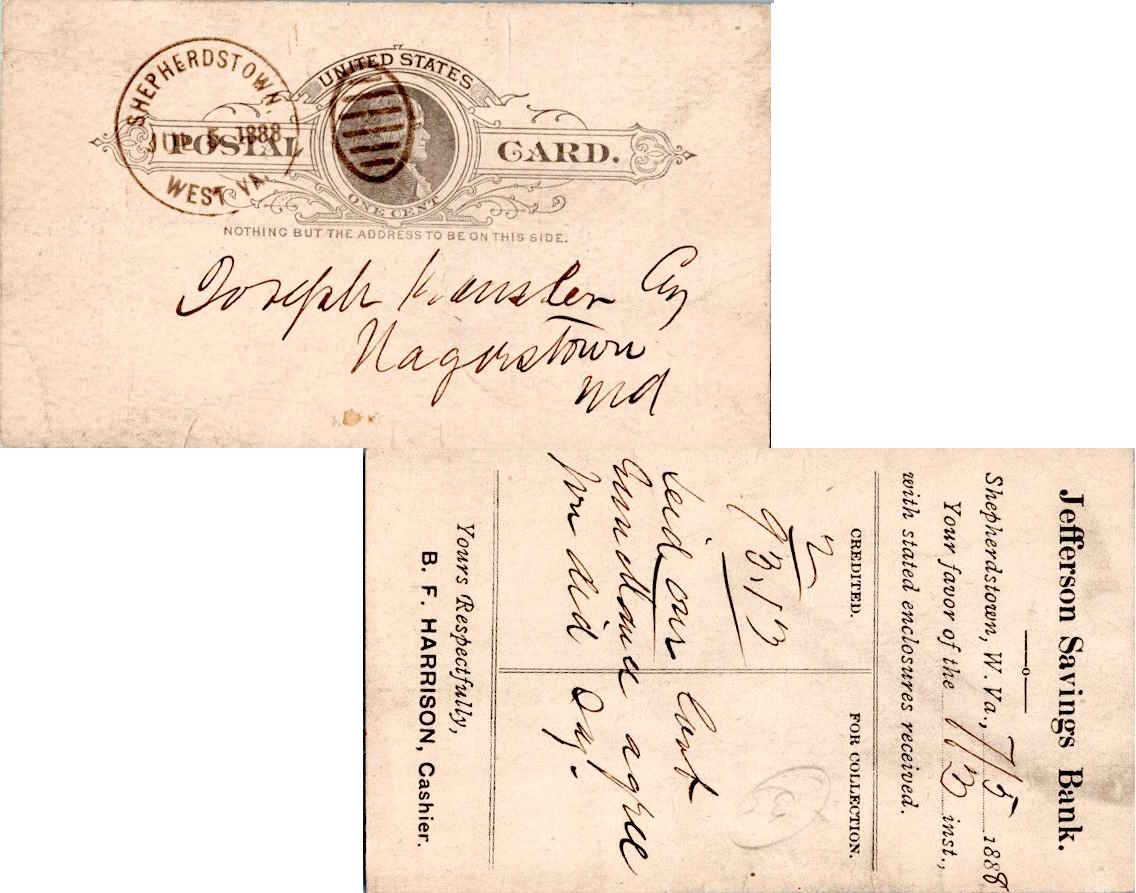 SHEPHERDSTOWN.
JUL 5 1888
WEST VA.
UNITED STATES
POSTAL CARD.
ONE CENT
NOTHING BUT THE ADDRESS TO BE ON THIS SIDE.
Joseph
Hagerstown
Md
Jefferson Savings Bank.
Shepherdstown, W. Va., 7/5 1888
Your favor of the inst.,
with stated enclosures received.
CREDITED. FOR COLLECTION.
2
93.13
our
agree
you did say.
Yours Respectfully,
B. F. HARRISON, Cashier.